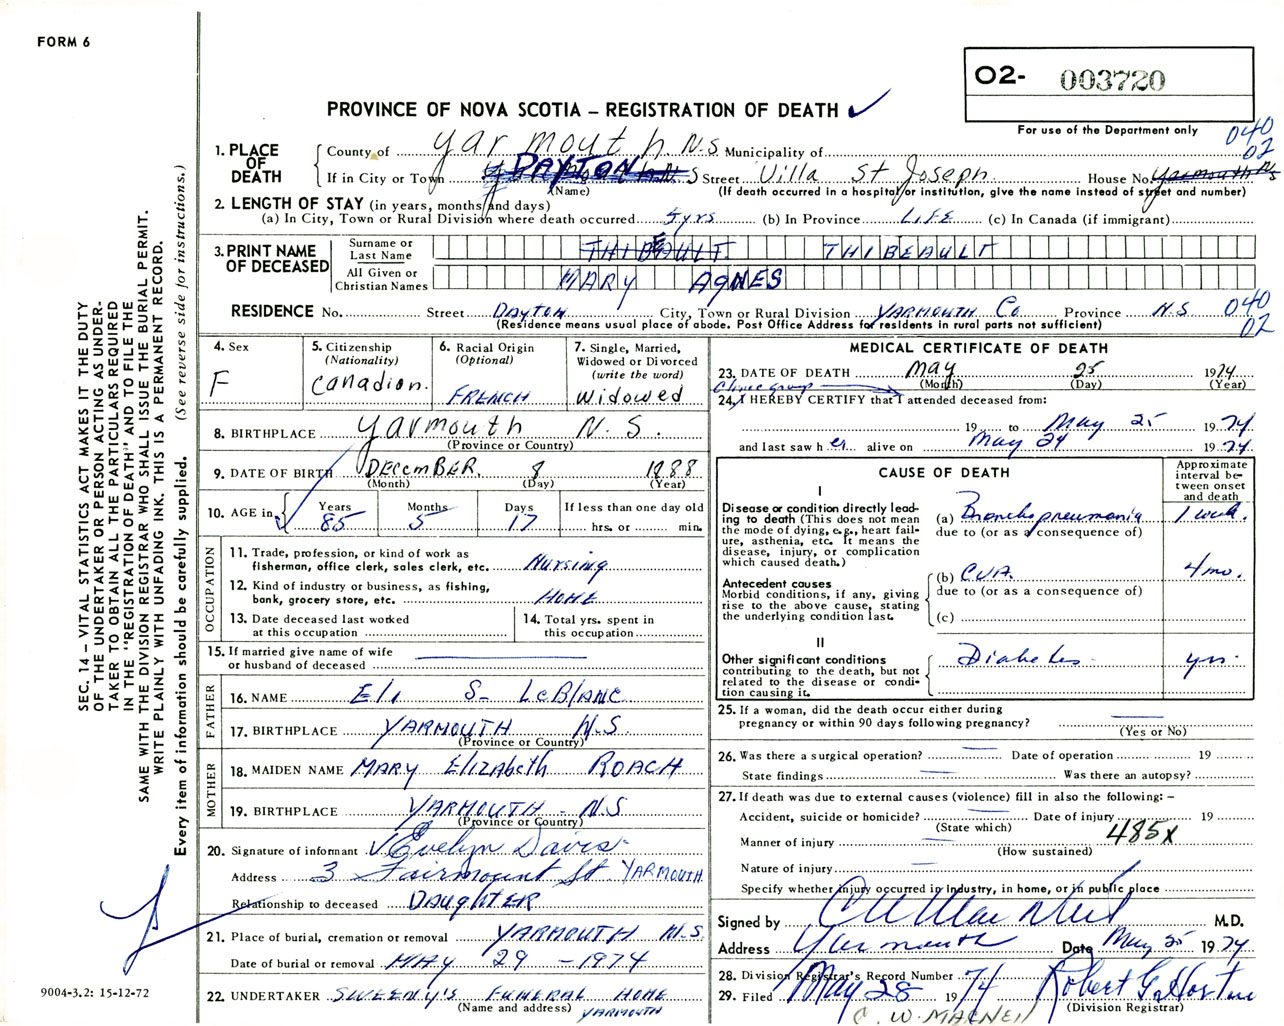 FORM 6
O2- 003720
PROVINCE OF NOVA SCOTIA – REGISTRATION OF DEATH ✓
For use of the Department only
040
02
1. PLACE OF DEATH
County of Yarmouth. N.S Municipality of
If in City or Town DAYTON Street Villa St Joseph. House No. Yarmouth NS
(Name) (If death occurred in a hospital or institution, give the name instead of street and number)
2. LENGTH OF STAY (in years, months and days)
(a) In City, Town or Rural Division where death occurred 5 yrs (b) In Province LIFE (c) In Canada (if immigrant)
3. PRINT NAME OF DECEASED
Surname or Last Name THIBEAULT THIBEAULT
All Given or Christian Names MARY AGNES
RESIDENCE No. Street Dayton City, Town or Rural Division YARMOUTH Co Province N.S. 040
(Residence means usual place of abode. Post Office Address for residents in rural parts not sufficient) 02
4. Sex
F
5. Citizenship
(Nationality)
Canadian.
6. Racial Origin
(Optional)
FRENCH
7. Single, Married,
Widowed or Divorced
(write the word)
Widowed
8. BIRTHPLACE Yarmouth N.S.
(Province or Country)
9. DATE OF BIRTH DECEMBER. 8 1888
(Month) (Day) (Year)
10. AGE in
Years Months Days If less than one day old
85 5 17 hrs. or min.
OCCUPATION
11. Trade, profession, or kind of work as
fisherman, office clerk, sales clerk, etc. Nursing
12. Kind of industry or business, as fishing,
bank, grocery store, etc. HOME
13. Date deceased last worked
at this occupation
14. Total yrs. spent in
this occupation
15. If married give name of wife
or husband of deceased
FATHER
16. NAME Eli S- LeBlANC
17. BIRTHPLACE YARMOUTH N.S.
(Province or Country)
MOTHER
18. MAIDEN NAME MARY Elizabeth ROACH
19. BIRTHPLACE YARMOUTH - N.S
(Province or Country)
20. Signature of informant Evelyn Davis
Address 3 Fairmount St YARMOUTH
Relationship to deceased DAUGHTER
21. Place of burial, cremation or removal YARMOUTH N.S
Date of burial or removal MAY 29 - 1974
22. UNDERTAKER SWEENY'S FUNERAL HOME
(Name and address) YARMOUTH
MEDICAL CERTIFICATE OF DEATH
23. DATE OF DEATH May 25 1974
(Month) (Day) (Year)
Clinic group
24. I HEREBY CERTIFY that I attended deceased from:
19 to May 25 1974
and last saw her alive on May 24 1974
CAUSE OF DEATH
Approximate
interval be-
tween onset
and death
I
Disease or condition directly lead-
ing to death (This does not mean
the mode of dying, e.g., heart fail-
ure, asthenia, etc. It means the
disease, injury, or complication
which caused death.)
(a) Bronchopneumonia 1 week.
due to (or as a consequence of)
Antecedent causes
Morbid conditions, if any, giving
rise to the above cause, stating
the underlying condition last.
(b) CVA. 4 mo.
due to (or as a consequence of)
(c)
II
Other significant conditions
contributing to the death, but not
related to the disease or condi-
tion causing it.
Diabetes. yrs.
25. If a woman, did the death occur either during
pregnancy or within 90 days following pregnancy?
(Yes or No)
26. Was there a surgical operation? Date of operation 19
State findings Was there an autopsy?
27. If death was due to external causes (violence) fill in also the following: –
Accident, suicide or homicide? Date of injury 19
(State which)
485X
Manner of injury
(How sustained)
Nature of injury
Specify whether injury occurred in industry, in home, or in public place
Signed by M.D.
Address Yarmouth Date May 25 1974
28. Division Registrar's Record Number 74
29. Filed May 28 1974 Robert G.
(Division Registrar)
C. W. MACNEIL
SEC. 14 – VITAL STATISTICS ACT MAKES IT THE DUTY
OF THE UNDERTAKER OR PERSON ACTING AS UNDER-
TAKER TO OBTAIN ALL THE PARTICULARS REQUIRED
IN THE "REGISTRATION OF DEATH" AND TO FILE THE
SAME WITH THE DIVISION REGISTRAR WHO SHALL ISSUE THE BURIAL PERMIT.
WRITE PLAINLY WITH UNFADING INK. THIS IS A PERMANENT RECORD.
Every item of information should be carefully supplied. (See reverse side for instructions.)
9004-3.2: 15-12-72